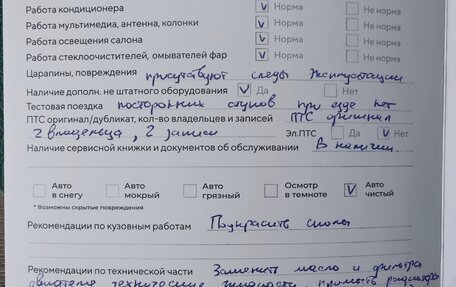 Работа кондиционера V Норма Не норма
Работа мультимедиа, антенна, колонки V Норма Не норма
Работа освещения салона V Норма Не норма
Работа стеклоочистителей, омывателей фар V Норма Не норма
Царапины, повреждения присутствуют следы эксплуатации
Наличие дополн. не штатного оборудования V Да Нет
Тестовая поездка посторонних стуков при езде нет
ПТС оригинал/дубликат, кол-во владельцев и записей ПТС оригинал
2 владельца, 2 записи Эл.ПТС Да V Нет
Наличие сервисной книжки и документов об обслуживании В наличии.
Авто в снегу
Авто мокрый
Авто грязный
Осмотр в темноте
V Авто чистый
* Возможны скрытые повреждения
Рекомендации по кузовным работам Подкрасить сколы
Рекомендации по технической части Заменить масло и фильтра
двигателя технические жидкости, промыть радиаторы